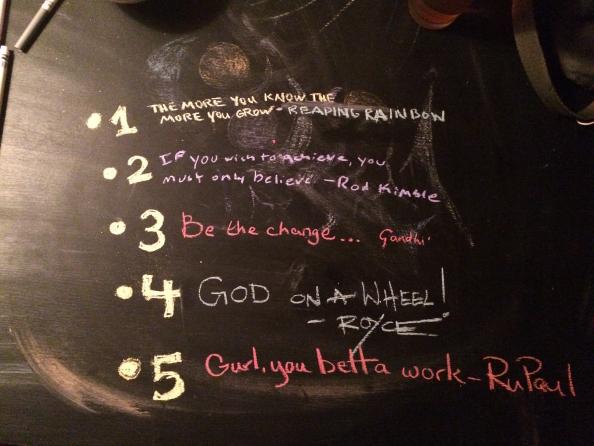 •1 THE MORE YOU KNOW THE
MORE YOU GROW - REAPING RAINBOW
•2 IF you wish to achieve, you
must only believe. - Rod Kimble
•3 Be the change... Gandhi
•4 GOD ON A WHEEL!
- ROYCE
•5 Gurl, you betta work - RuPaul